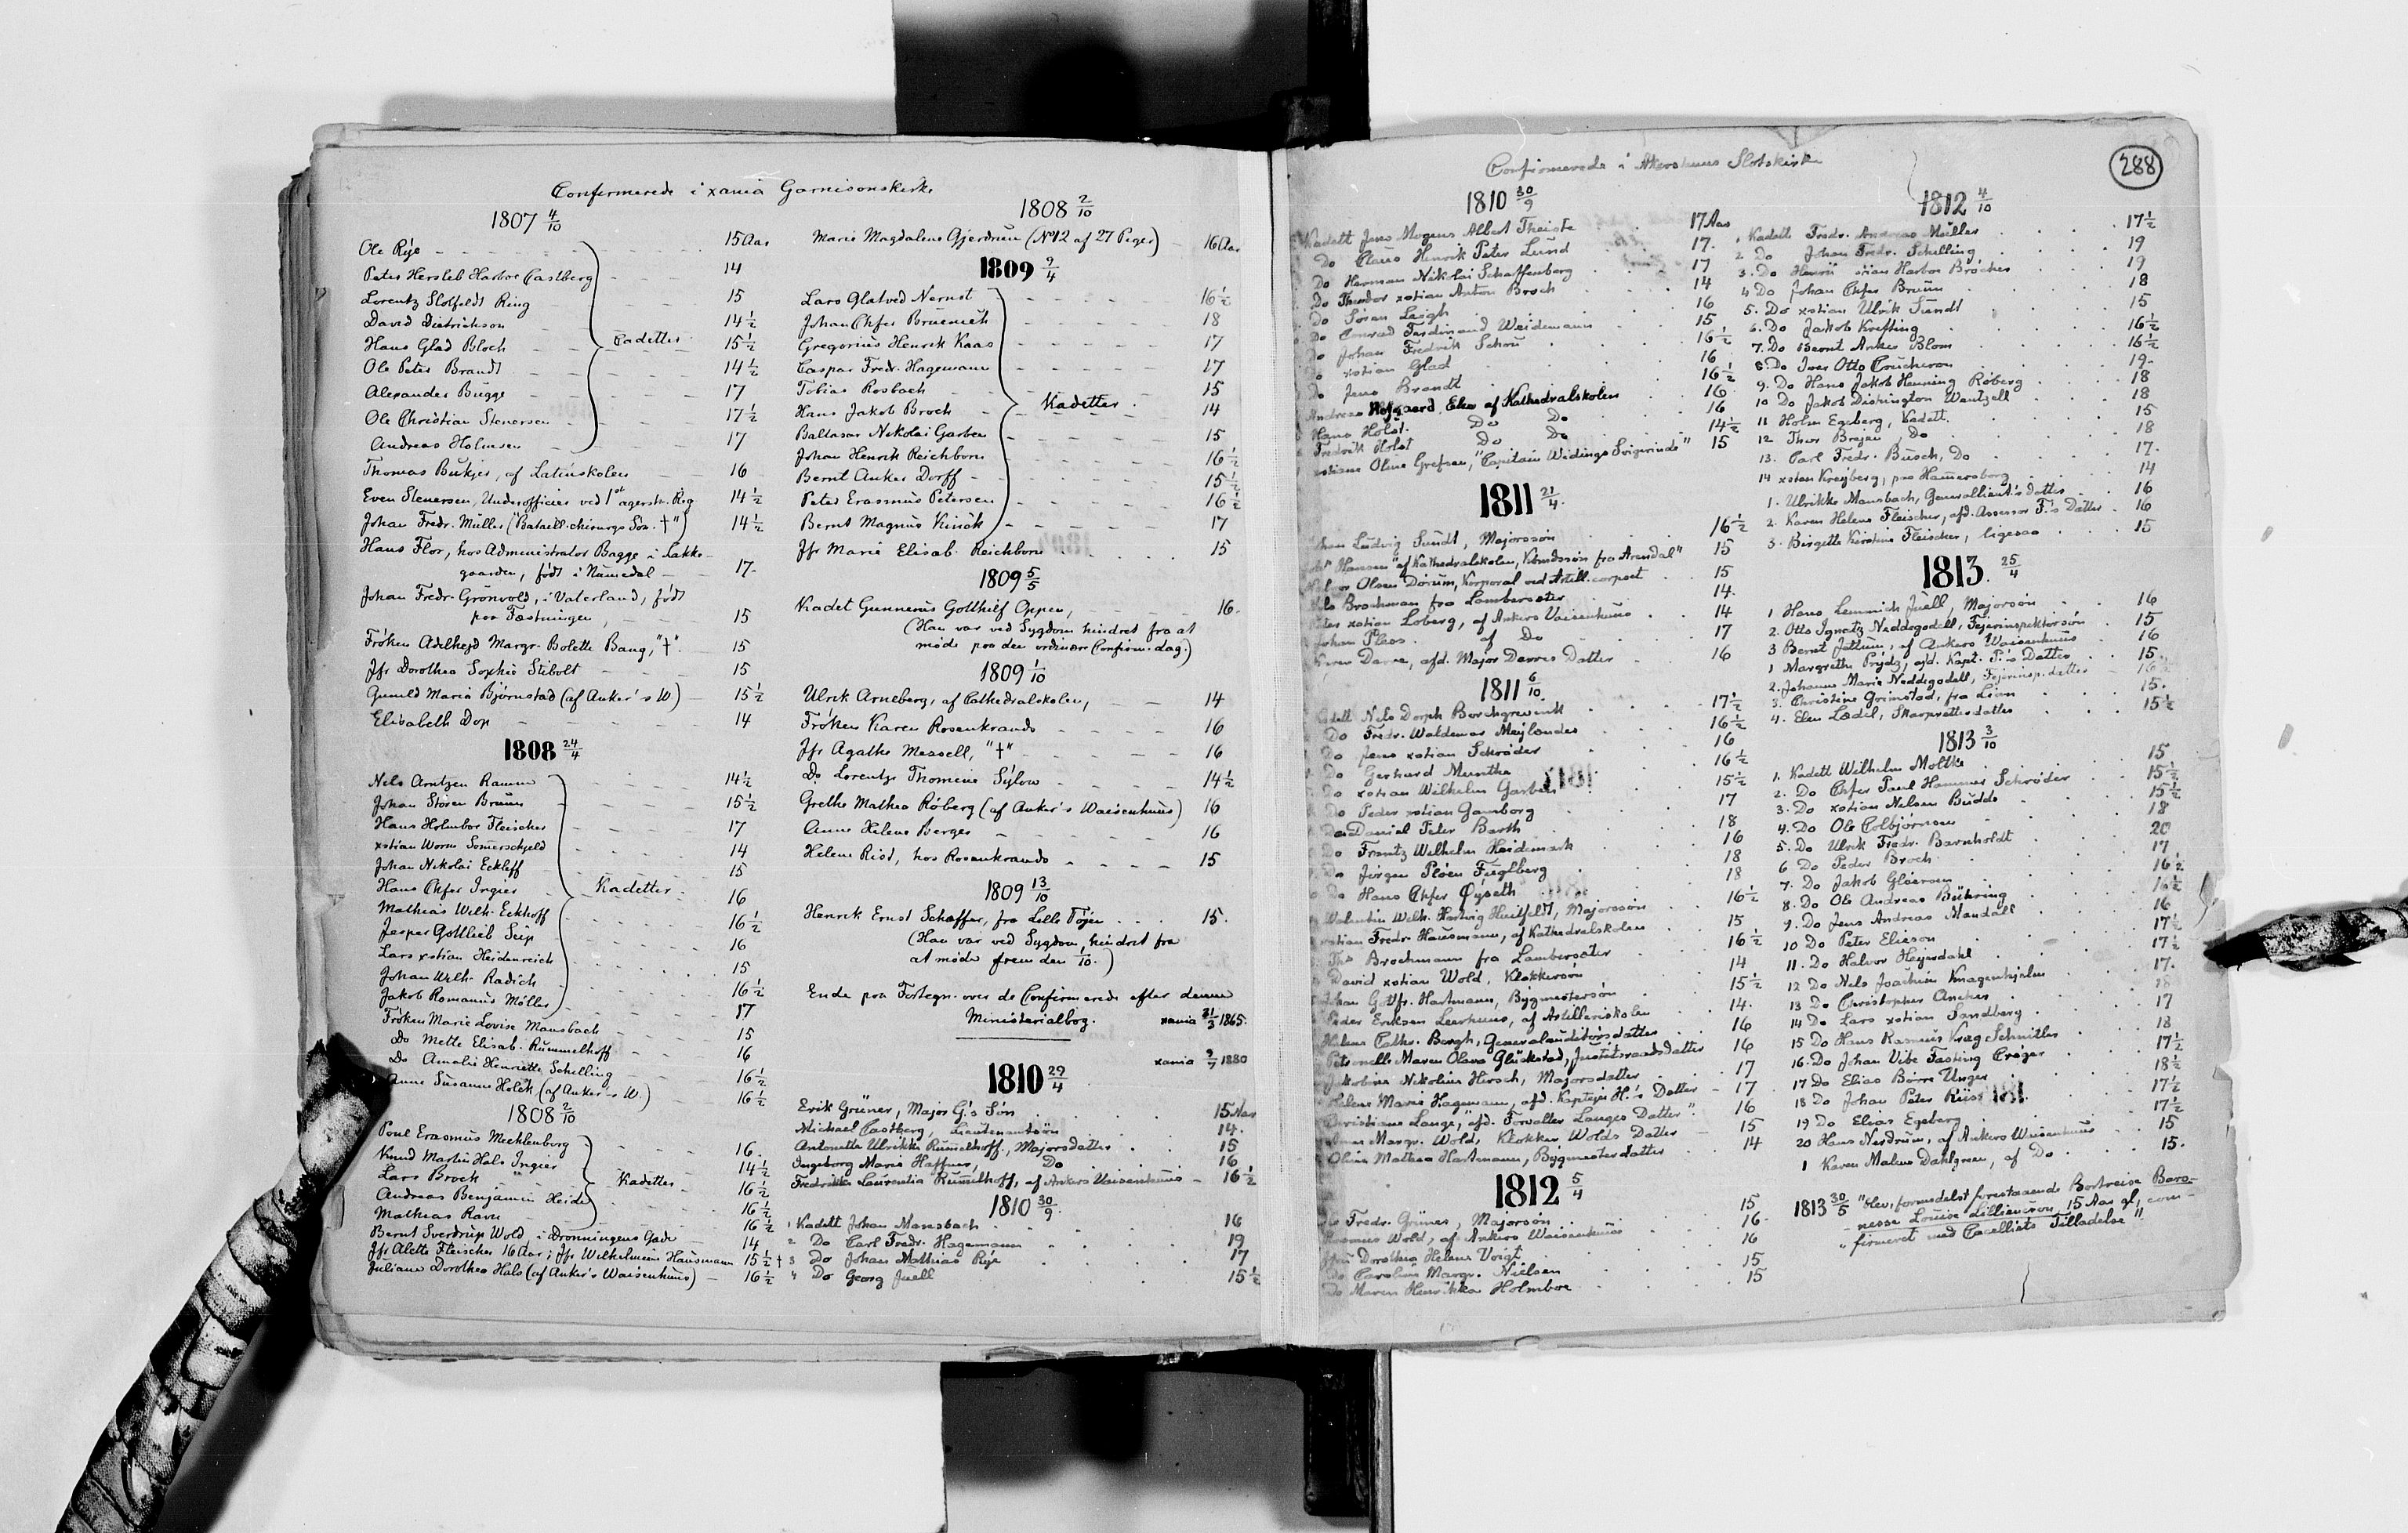 Confirmerede i xania Garnisonskirke
1807 4/10
Ole Rÿe 15 Aar
Peter Hersleb Harboe Castberg 14
Lorentz Slotfeldt Ring 15
David Dietrichson 14 1/2
Hans Glad Bloch 15 1/2
Cadetter
Ole Peter Brandt 14 1/2
Alexander Bugge 17
Ole Christian Stenersen 17 1/2
Andreas Holmsen 17
Thomas Bukjer, af Latinskolen 16
Even Stenersen, Underofficier ved 1st agersh. Reg 14 1/2
Johan Fredr. Müller ("Bataill. chirurgs Søn. †") 14 1/2
Hans Flor, hos Administrator Bagge i Lakke-
gaarden, født i Numedal 17.
Johan Fredr. Grönvold, i Vaterland, født
paa Fæstningen, 15
Fröken Adelheyd Margr. Bolette Bang, "†". 15
Jfr Dorothea Sophie Stibolt 15
Gunild Maria Bjørnstad (af Anker's W) 15 1/2
Elisabeth Dop 14
1808 24/4
Nils Arntzen Ramm 14 1/2
Johan Støren Bruun 15 1/2
Hans Holmboe Fleischer 17
xstian Worm Somerschjeld 14
Johan Nikolai Eckleff 15
Hans Chfer Ingier 16
Kadetter
Mathias Wilh. Eckhoff 16 1/2
Jesper Gottlieb Seip 16
Lars xstian Heidenreich 15
Johan Wilh. Radich 16 1/2
Jakob Romanus Möller 17
Fröken Marie Lovise Mansbach 15
Do Mette Elisab. Rummelhoff 16
Do Amalie Henriette Schelling 16 1/2
Anne Susanne Holck (af Anker's W.) 16 1/2
1808 2/10
Poul Erasmus Mechlenborg 16.
Knud Martin Hals Ingier 14 1/2
Lars Broch 16 1/2
Kadetter
Andreas Benjamin Heide 16 1/2
Mathias Ravn 16 1/2
Bernt Sverdrup Wold, i Dronningens Gade 14
Jfr Alette Fleischer 16 Aar; Jfr Wilhelmine Hausmann 15 1/2 †
Juliane Dorothea Hals (af Anker's Waisenhuus) 16 1/2
1808 2/10
Marie Magdalena Gjerdrum (No 12 af 27 Piger) 16 Aar
1809 9/4
Lars Glatved Nernst 16 1/2
Johan Chfer Bruenech 18
Gregorius Henrik Kaas 17
Caspar Fredr. Hagemann 17
Tobias Rosbach 15
Hans Jakob Broch 14
Kadetter
Baltasar Nikolai Garben 15
Johan Henrik Reichborn 16 1/2
Bernt Anker Dorff 15 1/2
Peter Erasmus Petersen 16 1/2
Bernt Magnus Kinck 17
Jfr Marie Elisab. Reichborn 15
1809 5/5
Kadet Gunnerus Gotthilf Oppen, 16.
(Han var ved Sygdom hindret fra at
møde paa den ordinære Confirm. dag.)
1809 1/10
Ulrik Arneberg, af Cathedralskolen, 14
Fröken Karen Rosenkrands 16
Jfr Agathe Messell, "†" 16
Do Lorentze Thomine Sylow 14 1/2
Grethe Mathea Röberg (af Anker's Waisenhuus) 16
Anne Helene Berger 16
Helene Rist, hos Rosenkrands 15
1809 13/10
Henrik Ernst Schæffer, fra Lille Tøjen 15.
(Han var ved Sygdom hindret fra
at møde frem den 1/10.)
Ende paa Fortegn. over de Confirmerede efter denne
Ministerialbog. xania 31/3 1865.
xania 9/7 1880
1810 29/4
Erik Grüner, Major G's Søn 15 Aar
Michael Castberg, Lieutenantsön 14.
Antonette Ulrikke Rummelhoff, Majorsdatter 15
Ingeborg Marie Haffner, Do 16
Fredrikke Laurentia Rummelhoff, af Ankers Vaisenhuus 16 1/2
1810 30/9.
1 Kadett Johan Mansbach 16
2 Do Carl Fredr. Hagemann 19
3 Do Johan Mathias Rÿe 17
4 Do Georg Juell 15 1/2
288
Confirmerede i Akershuus Slotskirke
1810 30/9
Kadett Jens Mogens Albert Theiste 17 Aar
Do Claus Henrik Peter Lund 17.
Do Herman Nikolai Schaffenberg 17
Do Theodor xstian Anton Broch 14
Do Søren Leigh 16
Do Conrad Ferdinand Weidemann 15
Do Johan Fredrik Schou 16 1/2
Do xstian Glad 16
Do Jens Brandt 16 1/2
Andreas Hofgaard, Elev af Kathedralskolen 16
Hans Holst. Do Do 16
Fredrik Holst Do Do 14 1/2
xstiane Oline Grefsen, "Capitain Widings Svigerinde" 15
1811 21/4.
Ludvig Sundt, Majorssøn 16 1/2
Hansen af Kathedralskolen, "Kbmdssøn fra Arendal" 15
Halvor Olsen Dørum, Korporal ved Artill. corpset 15
Nils Brochman fra Lambersæter 14.
Peter xstian Loberg, af Ankers Vaisenhuus 14
Johan Pleas. af Do 17
Karen Darre, afd. Major Darres Datter 16
1811 6/10.
Kadett Nils Dorph Borchgrevink 17 1/2
Do Fredr. Waldemar Meÿlænder 16 1/2
Do Jens xstian Schrøder 16
Do Gerhard Munthe 16 1/2
Do xstian Wilhelm Garben 15 1/2
Do Peder xstian Gamborg 17
Do Daniel Peter Barth 18
Do Frantz Wilhelm Heidemark 16
Do Jørgen Pløen Fuglberg 18
Do Hans Chfer Øÿseth 18
Valentin Wilh. Hartvig Huitfeldt, Majorssøn 16 1/2
xstian Fredr. Hausmann, af Kathedralskolen 15
Ths Brochmann fra Lambersæter 16 1/2
David xstian Wold, Klokkersøn 14
Johan Gottfr. Hartmann, Bygmestersøn 15 1/2
Peder Eriksen Leerhuus, af Artilleriskolen 14.
Helene Cathr. Bergh, Generalauditørsdatter 16
Petronelle Maren Olava Glückstad, Justitsraadsdatter 16
Jakobine Nikoline Hirsch, Majorsdatter 17
Helene Marie Hagemann, afd. Kaptejn H's Datter 17
Christiane Lange, "afd. Forvalter Langes Datter". 16
Anne Margr. Wold, Klokker Wolds Datter 15
Oline Mathea Hartmann, Bygmesterdatter 14
1812 5/4
Fredr. Grüner, Majorsøn 15
Rasmus Wold, af Ankers Waisenhuus 16.
Jfru Dorothea Helene Voigt 16
Do Caroline Margr. Nielsen 15
Do Maren Henrikka Holmboe 15
1812 4/10
1 Kadett Fredr. Andreas Müller 17 1/2
2 Do Johan Fredr. Schilling 19
3. Do Henrik xstian Harboe Bröcher 19
4 Do Johan Chfer Bruun 18
5. Do xstian Ulrik Sundt 15
6. Do Jakob Krefting 16 1/2
7. Do Bernt Anker Blom 16 1/2
8. Do Iver Otto Coucheron 19.
9. Do Hans Jakob Henning Røberg 18
10 Do Jakob Dishington Wentzell 18
11 Holm Egeberg, Kadett. 15
12 Thor Brejen, Do 18
13. Carl Fredr. Busch, Do 17.
14 xstian Kreÿberg, paa Hammersborg 14
1. Ulrikke Mansbach, Generallieut's datter 16
2. Karen Helene Fleischer, afd. Assessor F's Datter 16
3. Birgitte Kirstine Fleischer, ligesaa 15
1813. 25/4
1 Hans Lemmich Juell, Majorsøn 16
2. Otto Ignatz Neddegodell, Fejerinspektorsøn 15
3 Bernt Jettum, af Ankers Waisenhuus 16
1 Margrethe Prÿdz, afd. Kapt. P's Datter 15.
2. Johanne Marie Neddegodell, Fejerinsp. datter 16 1/2
3. Christine Grimstad, fra Lier 15.
4. Elen Lædel, Skarpretterdatter 15 1/2
1813 3/10
1. Kadett Wilhelm Moltke 15
2. Do Chfer Paul Hammer Schrøder 15 1/2
3. Do xstian Nelsen Budde 15 1/2
4. Do Ole Colbjørnsen 18
5. Do Ulrik Fredr. Barnholdt 20
6 Do Peder Broch 17
7. Do Jakob Gløersen 16 1/2
8. Do Ole Andreas Bühring 16 1/2
9. Do Jens Andreas Mandall 16
10 Do Peter Eliesen 17 1/2
11. Do Halvor Heÿerdahl 17 1/2
12 Do Nils Joachim Knagenhjelm 17.
13 Do Christopher Ancher 18
14 Do Lars xstian Sandberg 17
15 Do Hans Rasmus Krag Schnitler 18
16. Do Johan Vibe Fasting Crøger 17 1/2
17 Do Elias Børre Unger 18 1/2
18 Do Johan Peter Riis 17 1/2
19 Do Elias Egeberg 17 1/2
20 Hans Nerdrum, af Ankers Waisenhuus 15
1 Karen Malene Dahlgreen, af Do 15.
1813 30/5 "blev, formedelst forestaaende Bortreise Baro-
nesse Louise Lilliencron, 15 Aar gl, con-
firmeret med Cancelliets Tilladelse"